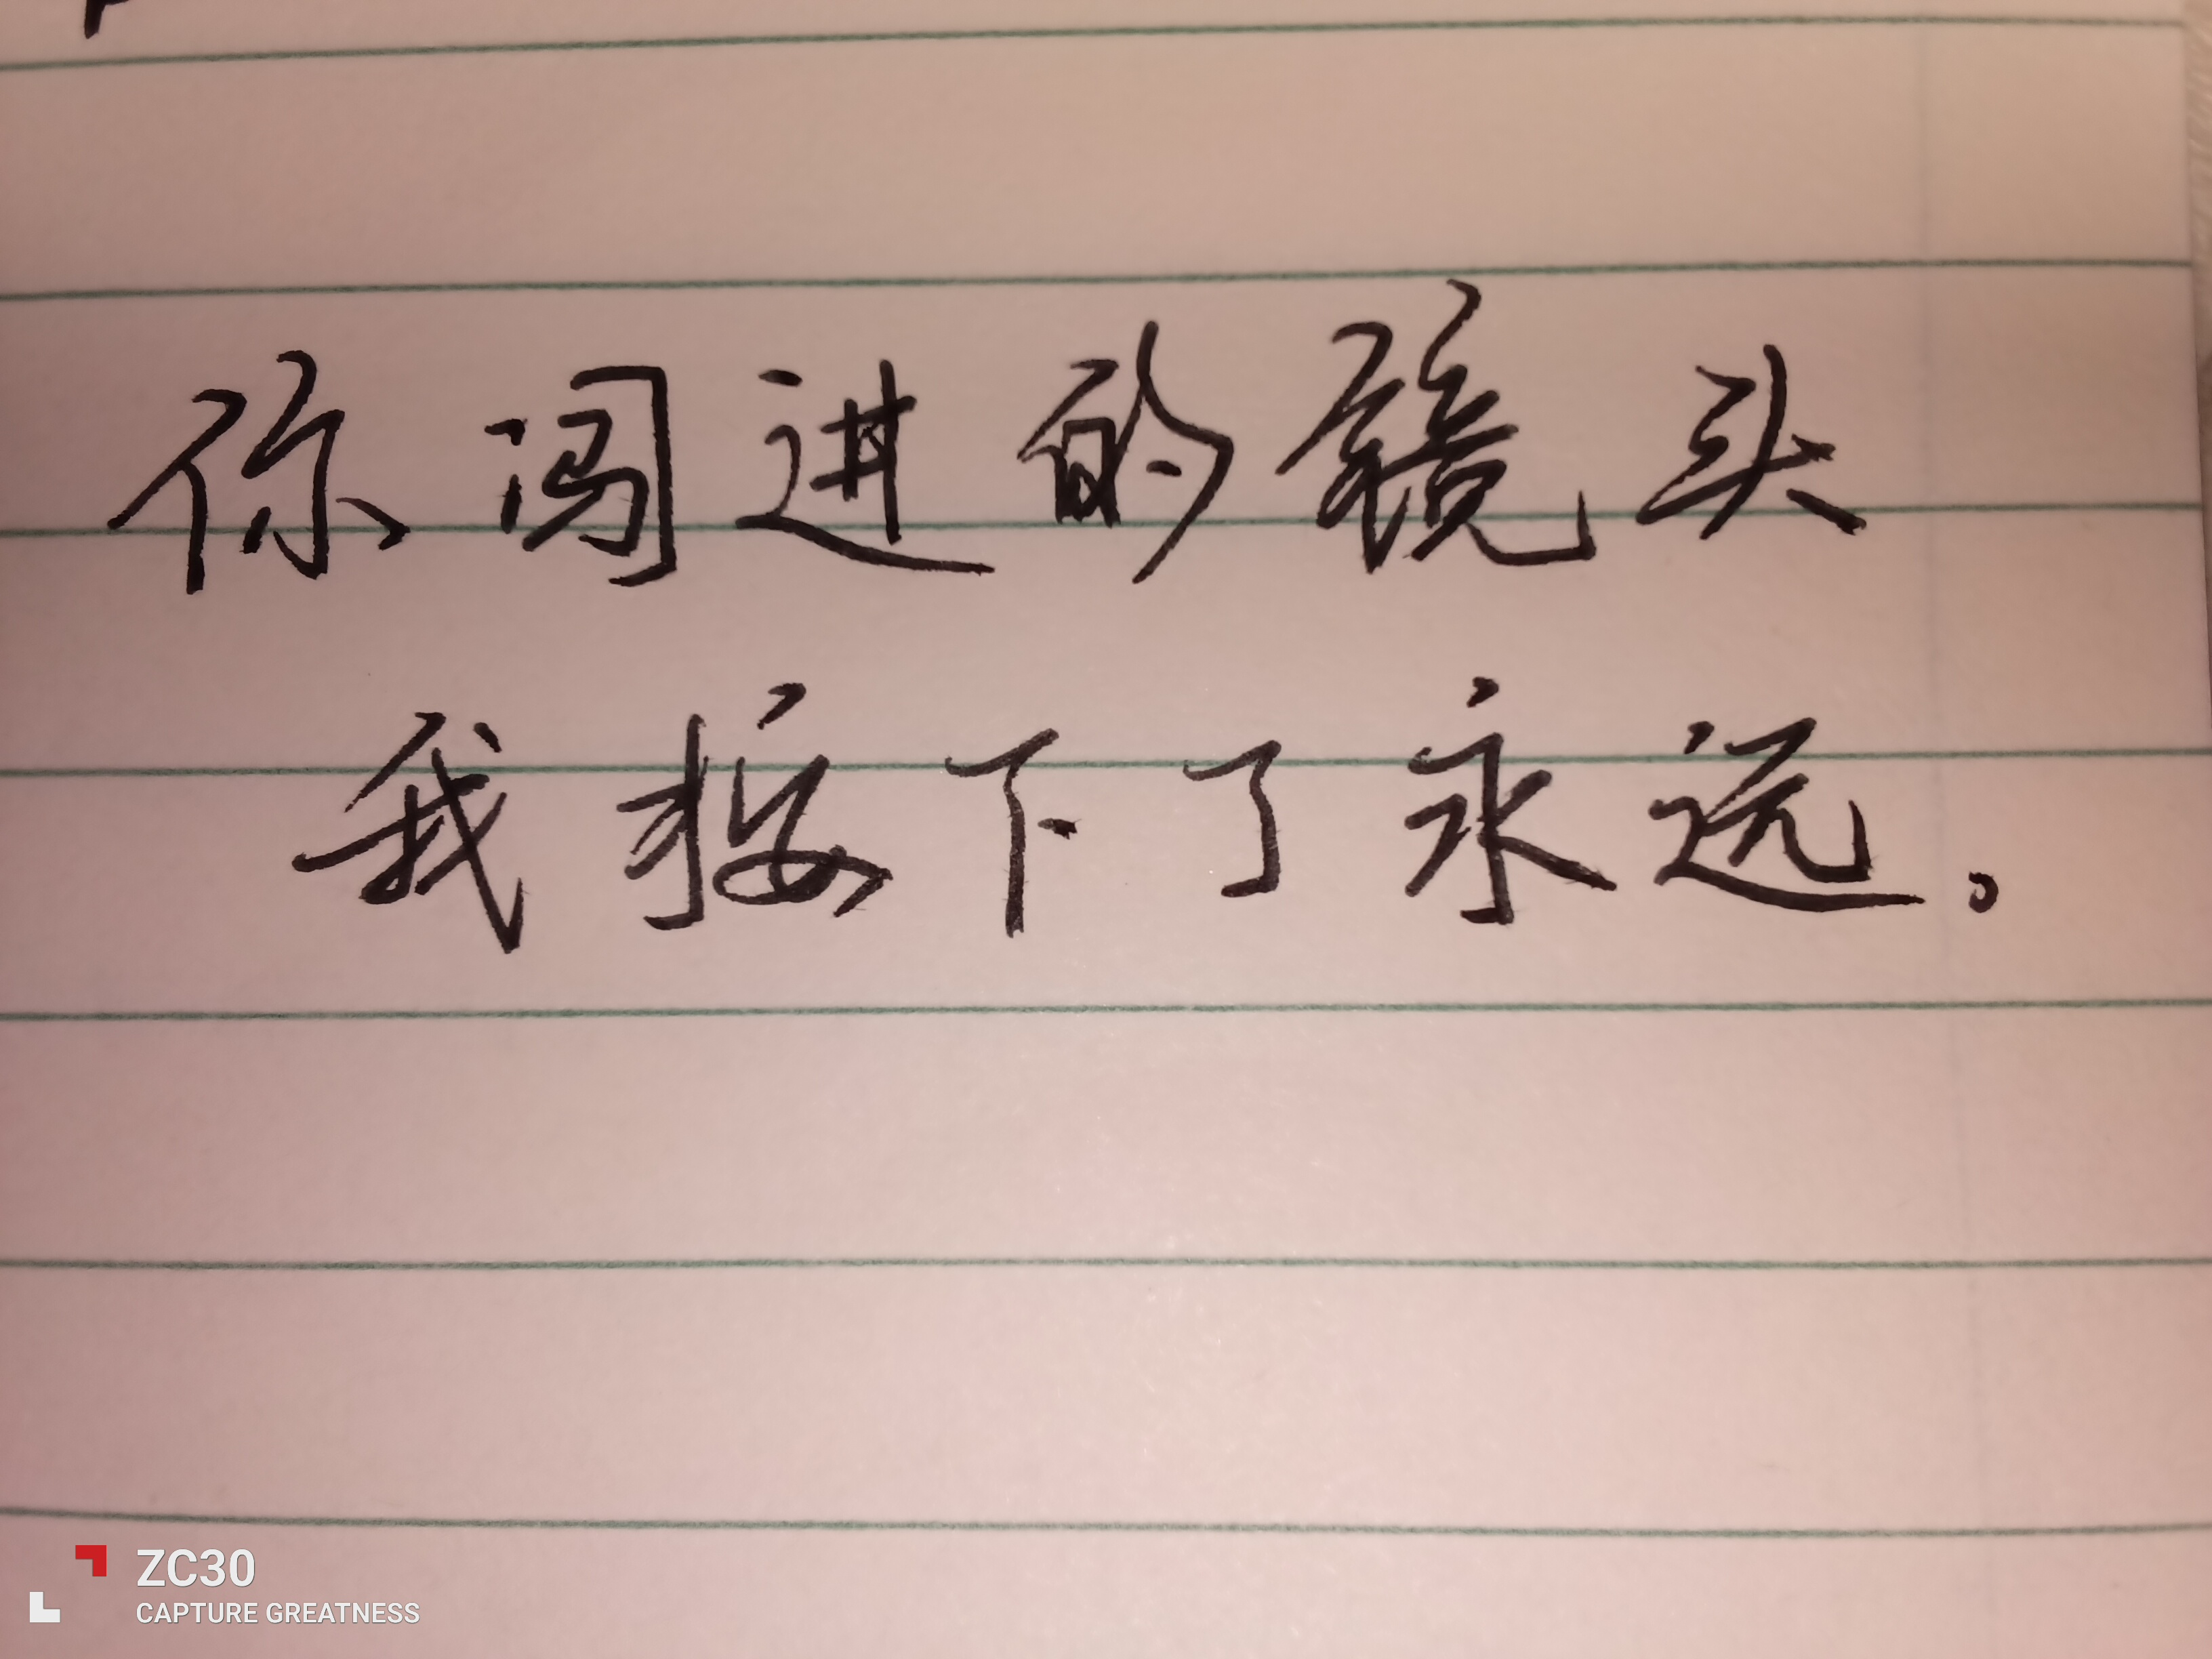 你闯进的镜头
我按下了永远。
ZC30
CAPTURE GREATNESS